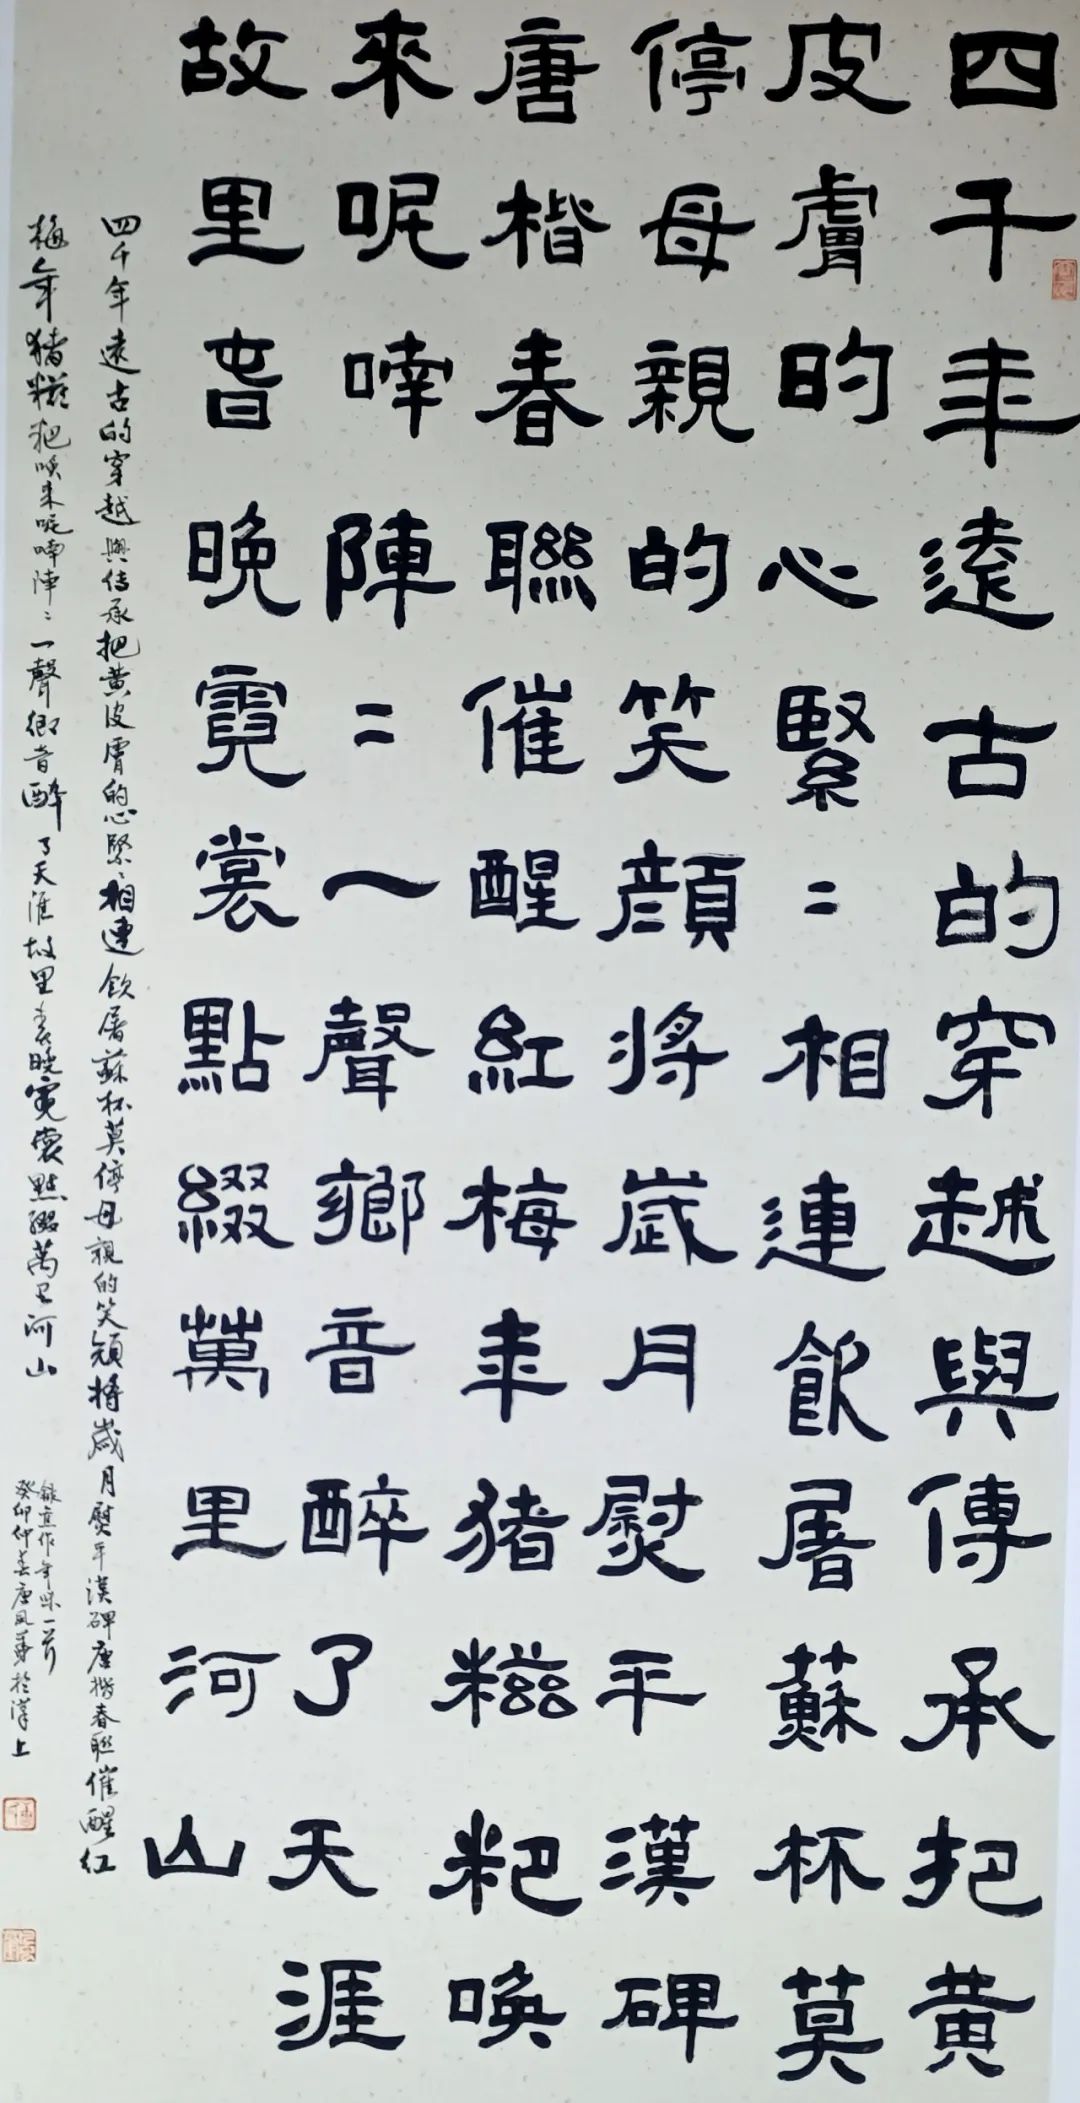 四千年遠古的穿越與傳承把黃
皮膚的心緊〻相連飲屠蘇杯莫
停母親的笑顏將歲月熨平漢碑
唐楷春聯催醒紅梅年猪糍粑喚
來呢喃陣〻一聲鄉音醉了天涯
故里春晚霓裳點綴萬里河山
四千年遠古的穿越與傳承把黃皮膚的心緊〻相連飲屠蘇杯莫停母親的笑顏將歲月熨平漢碑唐楷春聯催醒紅
梅年猪糍粑喚來呢喃陣〻一聲鄉音醉了天涯故里春晚霓裳點綴萬里河山
錄並作年味一首
癸卯仲春唐風華於漢上